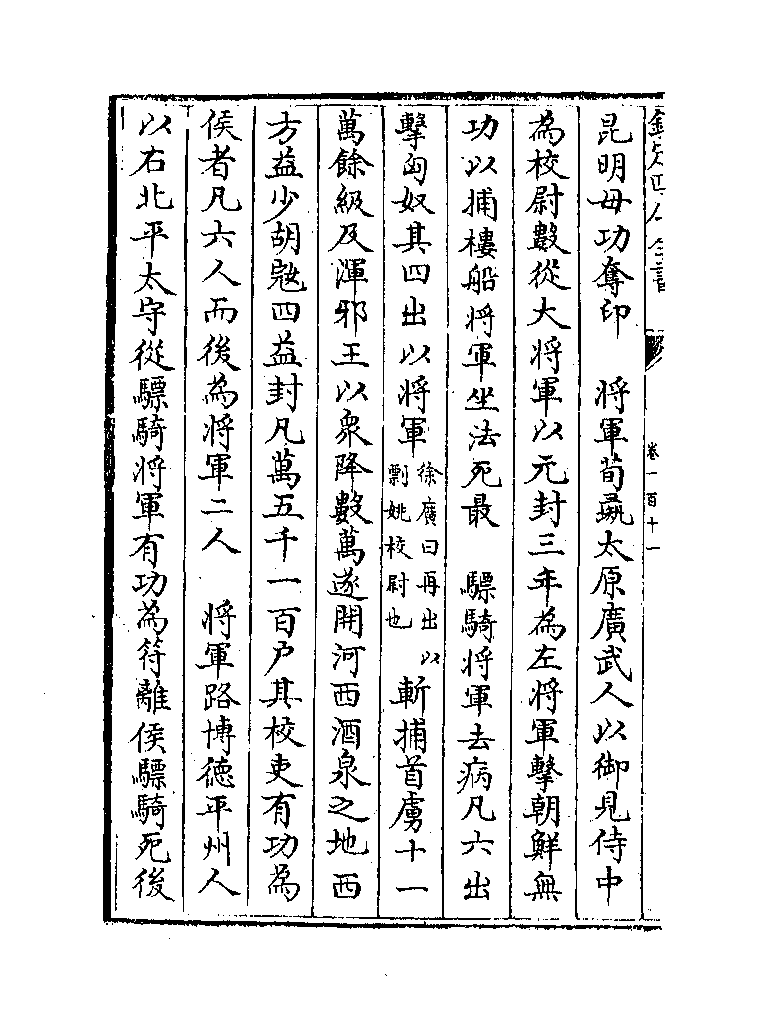 欽定四庫全書
卷一百十一
昆明毋功奪印　将軍荀彘太原廣武人以御見侍中
為校尉數從大将軍以元封三年為左将軍擊朝鮮無
功以捕樓船将軍坐法死最　驃騎将軍去病凡六出
擊匈奴其四出以将軍徐廣曰再出以剽姚校尉也斬捕首虜十一
萬餘級及渾邪王以衆降數萬遂開河西酒泉之地西
方益少胡冦四益封凡萬五千一百户其校吏有功為
侯者凡六人而後為将軍二人　将軍路博德平州人
以右北平太守從驃騎将軍有功為符離侯驃騎死後